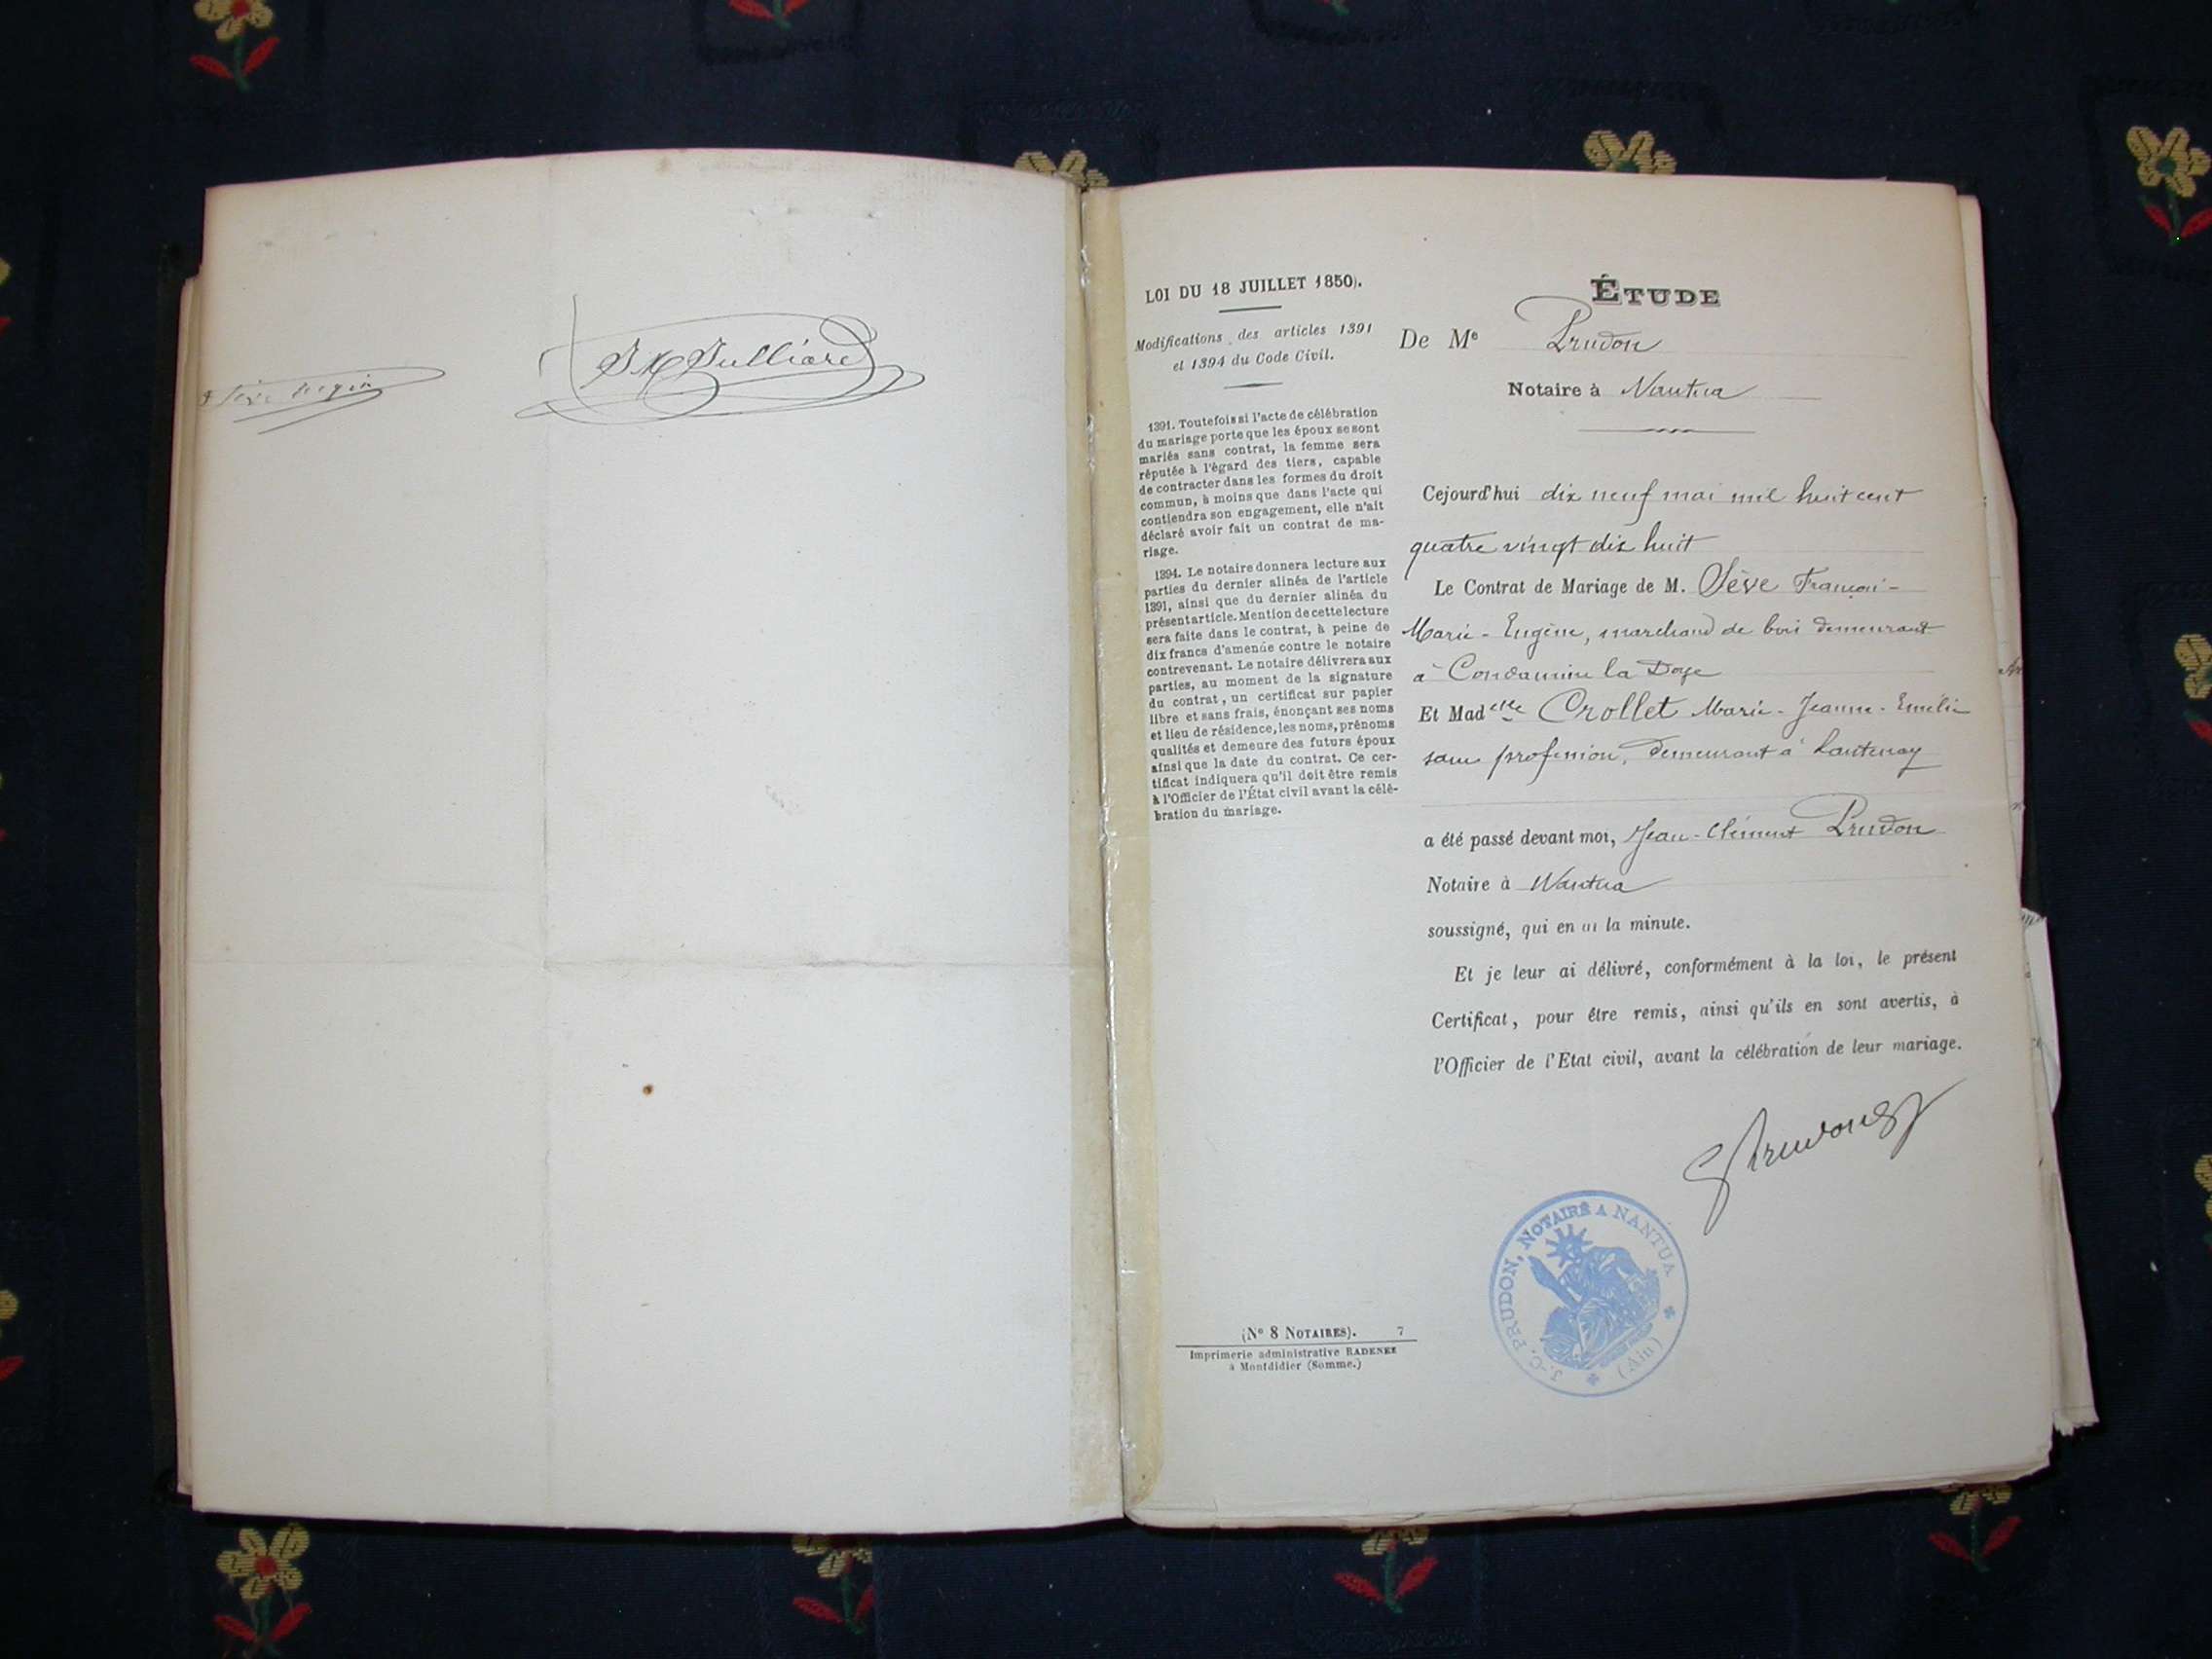 J M Julliard
LOI DU 18 JUILLET 1850).
Modifications des articles 1391
et 1394 du Code Civil.
1391. Toutefois si l'acte de célébration
du mariage porte que les époux se sont
mariés sans contrat, la femme sera
réputée à l'égard des tiers, capable
de contracter dans les formes du droit
commun, à moins que dans l'acte qui
contiendra son engagement, elle n'ait
déclaré avoir fait un contrat de ma-
riage.
1394. Le notaire donnera lecture aux
parties du dernier alinéa de l'article
1391, ainsi que du dernier alinéa du
présent article. Mention de cette lecture
sera faite dans le contrat, à peine de
dix francs d'amende contre le notaire
contrevenant. Le notaire délivrera aux
parties, au moment de la signature
du contrat, un certificat sur papier
libre et sans frais, énonçant ses noms
et lieu de résidence, les noms, prénoms
qualités et demeure des futurs époux
ainsi que la date du contrat. Ce cer-
tificat indiquera qu'il doit être remis
à l'Officier de l'État civil avant la célé-
bration du mariage.
(N° 8 NOTAIRES). 7
Imprimerie administrative RADENEZ
à Montdidier (Somme.)
ÉTUDE
De Me Prudon
Notaire à Nantua
Cejourd'hui dix neuf mai mil huit cent
quatre vingt dix huit
Le Contrat de Mariage de M. Sève François-
Marie-Eugène, marchand de bois demeurant
à Condamine la Doye
Et Madelle Crollet Marie-Jeanne-Emélie
sans profession, demeurant à Lantenay
a été passé devant moi, Jean-Clément Prudon
Notaire à Nantua
soussigné, qui en ai la minute.
Et je leur ai délivré, conformément à la loi, le présent
Certificat, pour être remis, ainsi qu'ils en sont avertis, à
l'Officier de l'Etat civil, avant la célébration de leur mariage.
Prudon
J.-C. PRUDON, NOTAIRE A NANTUA
(Ain)